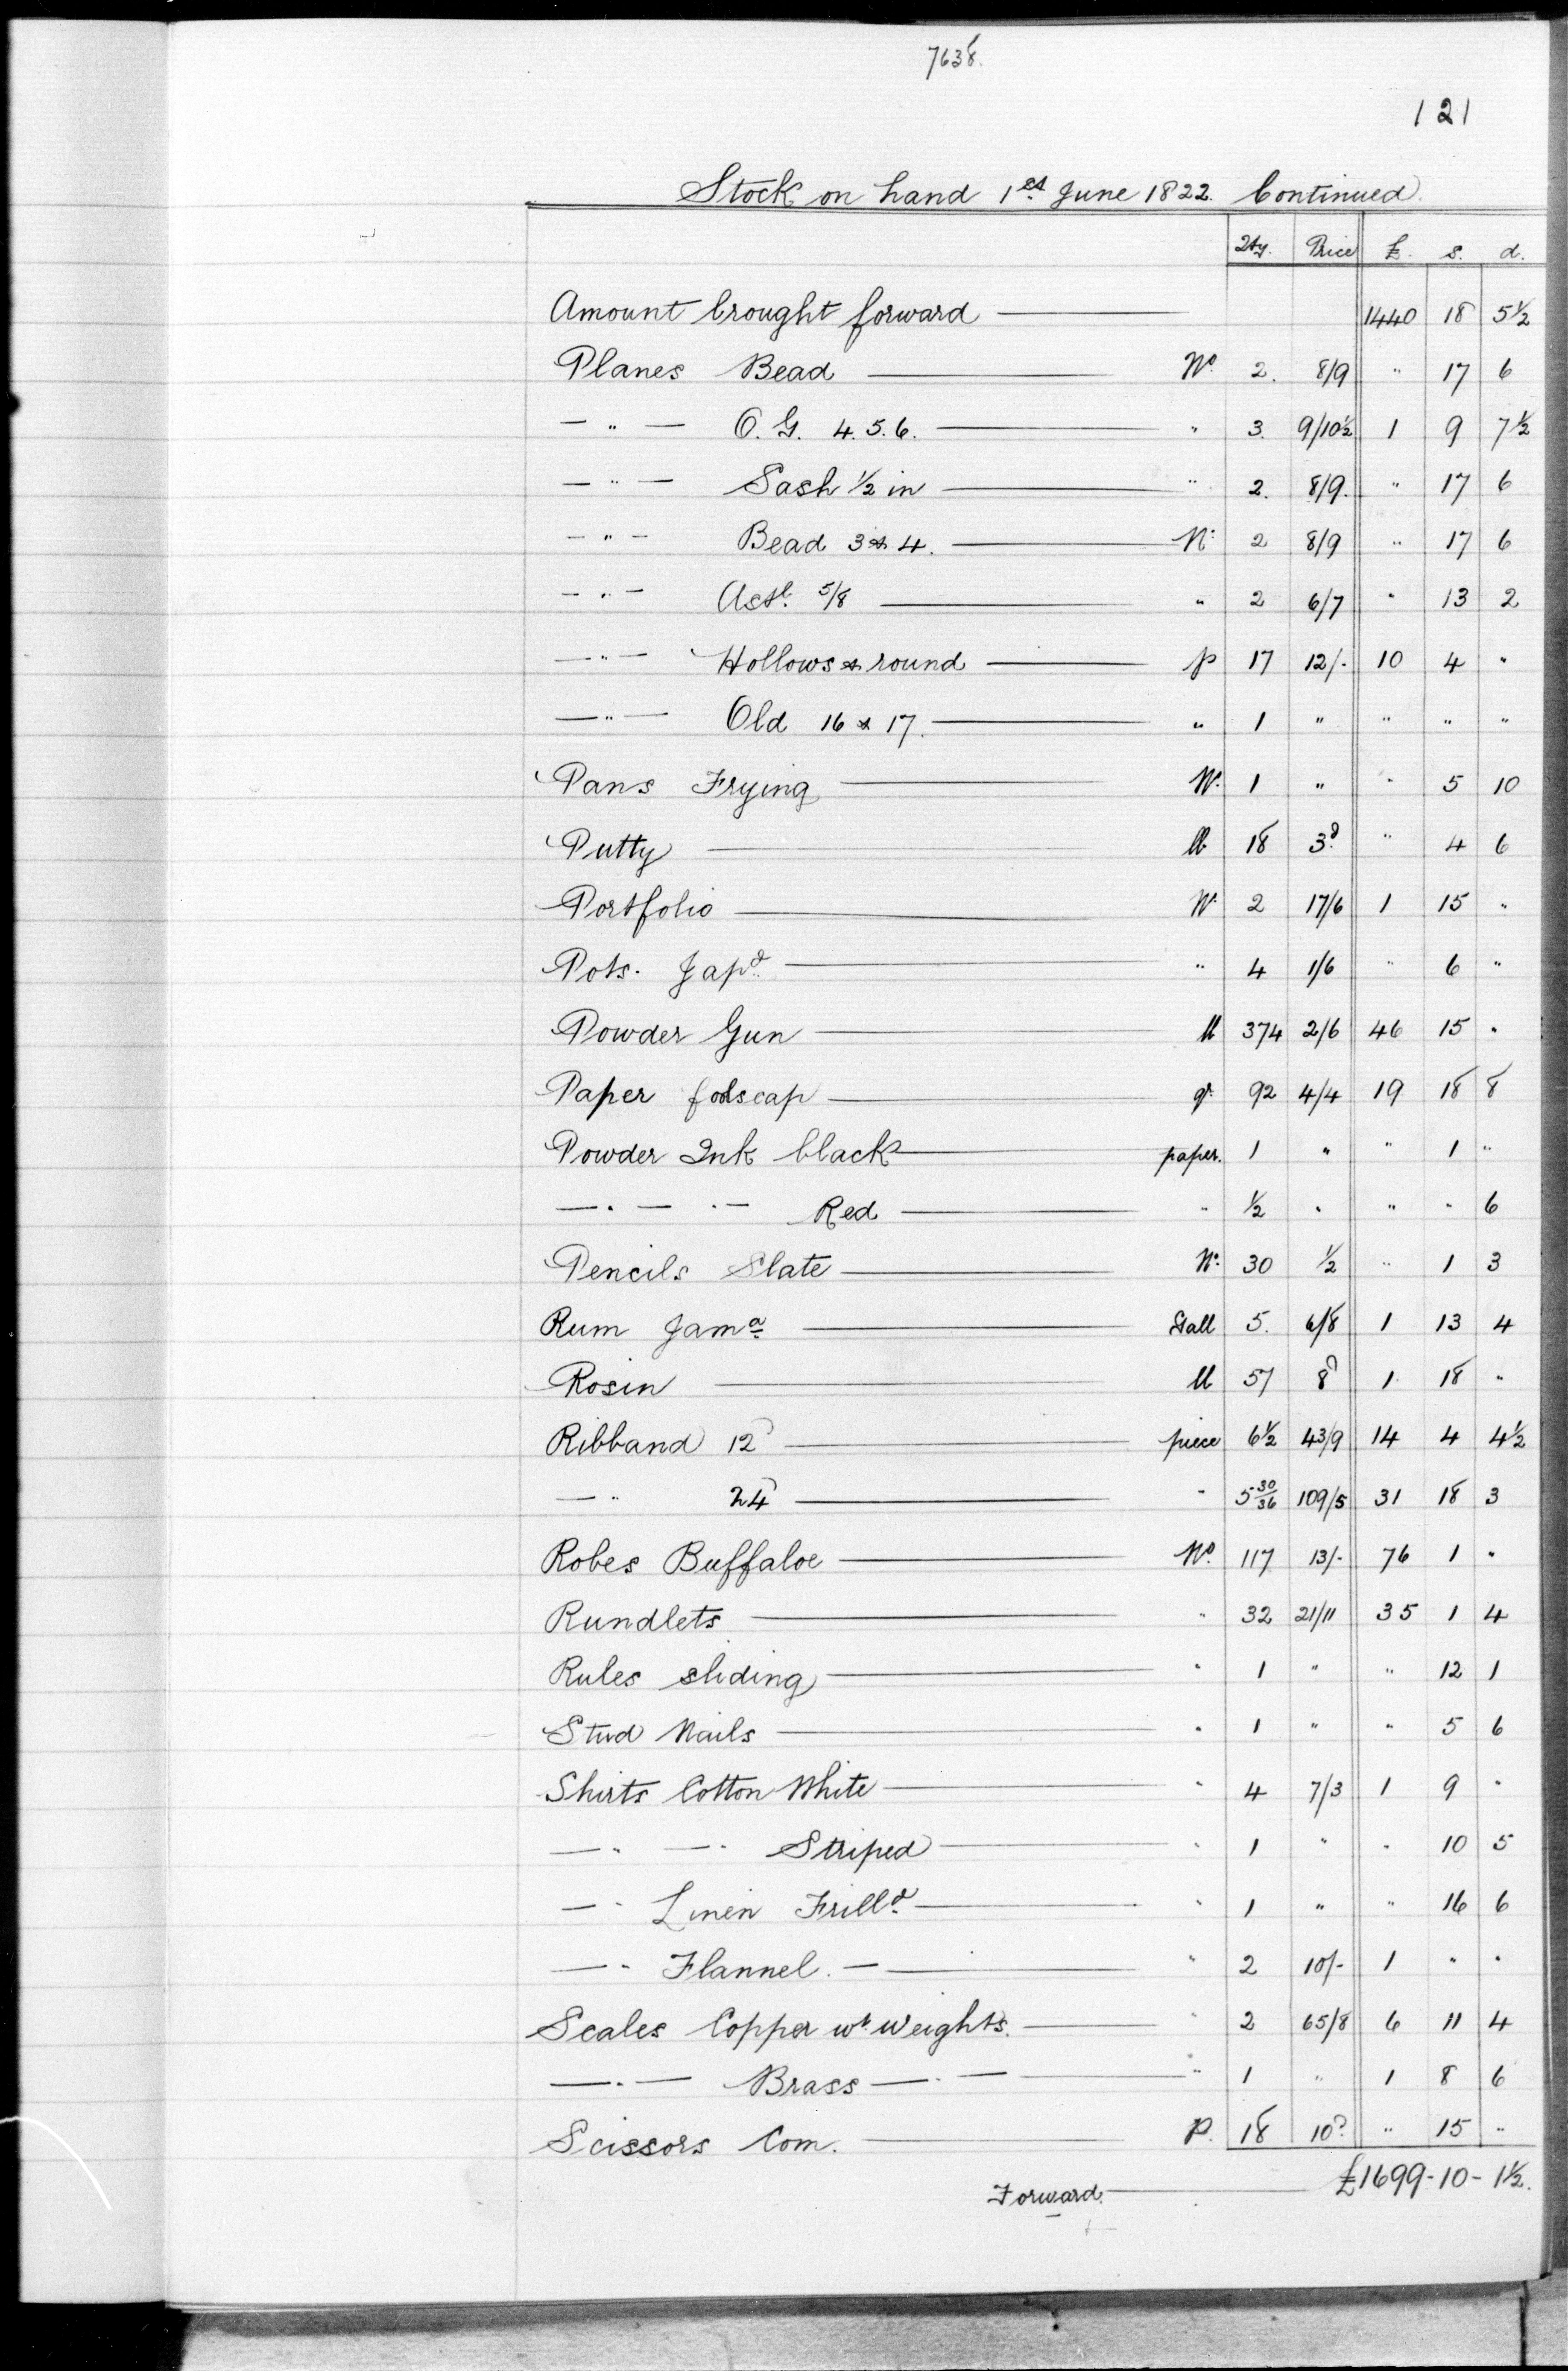 7638.
121
Stock on hand 1st June 1822. Continued.
Qty. Price £. s. d.
Amount brought forward — 1440 18 5½
Planes Bead — No. 2. 8/9 " 17 6
— " — O.G. 4.5.6. — " 3. 9/10½ 1 9 7½
— " — Sash ½ in — " 2. 8/9. " 17 6
— " — Bead 3 & 4. — No. 2 8/9 " 17 6
— " — Astl. 5/8 — " 2 6/7 " 13 2
— " — Hollows & round — p 17 12/- 10 4 "
— " — Old 16 & 17. — " 1 " " " "
Pans Frying — No. 1 " " 5 10
Putty — lb 18 3d. " 4 6
Portfolio — No. 2 17/6 1 15 "
Pots. Japd. — " 4 1/6 " 6 "
Powder Gun — lb 374 2/6 46 15 "
Paper foolscap — qr 92 4/4 19 18 8
Powder Ink black — paper. 1 " " 1 "
— " — " — Red — " ½ " " " 6
Pencils Slate — No. 30 ½ " 1 3
Rum Jama. — Gall 5. 6/8 1 13 4
Rosin — lb 57 8d 1 18 "
Ribband 12d — piece 6½ 43/9 14 4 4½
— " 24d — " 5 30/36 109/5 31 18 3
Robes Buffaloe — No. 117 13/- 76 1 "
Rundlets — " 32 21/11 35 1 4
Rules sliding — " 1 " " 12 1
Stud Nails — " 1 " " 5 6
Shirts Cotton White — " 4 7/3 1 9 "
— " — " Striped — " 1 " " 10 5
— " Linen Frilld. — " 1 " " 16 6
— " Flannel. — " 2 10/- 1 " "
Scales Copper wt. weights. — " 2 65/8 6 11 4
— " — Brass — " — " 1 " 1 8 6
Scissors Com. — p. 18 10d. " 15 "
Forward. — £1699-10-1½.